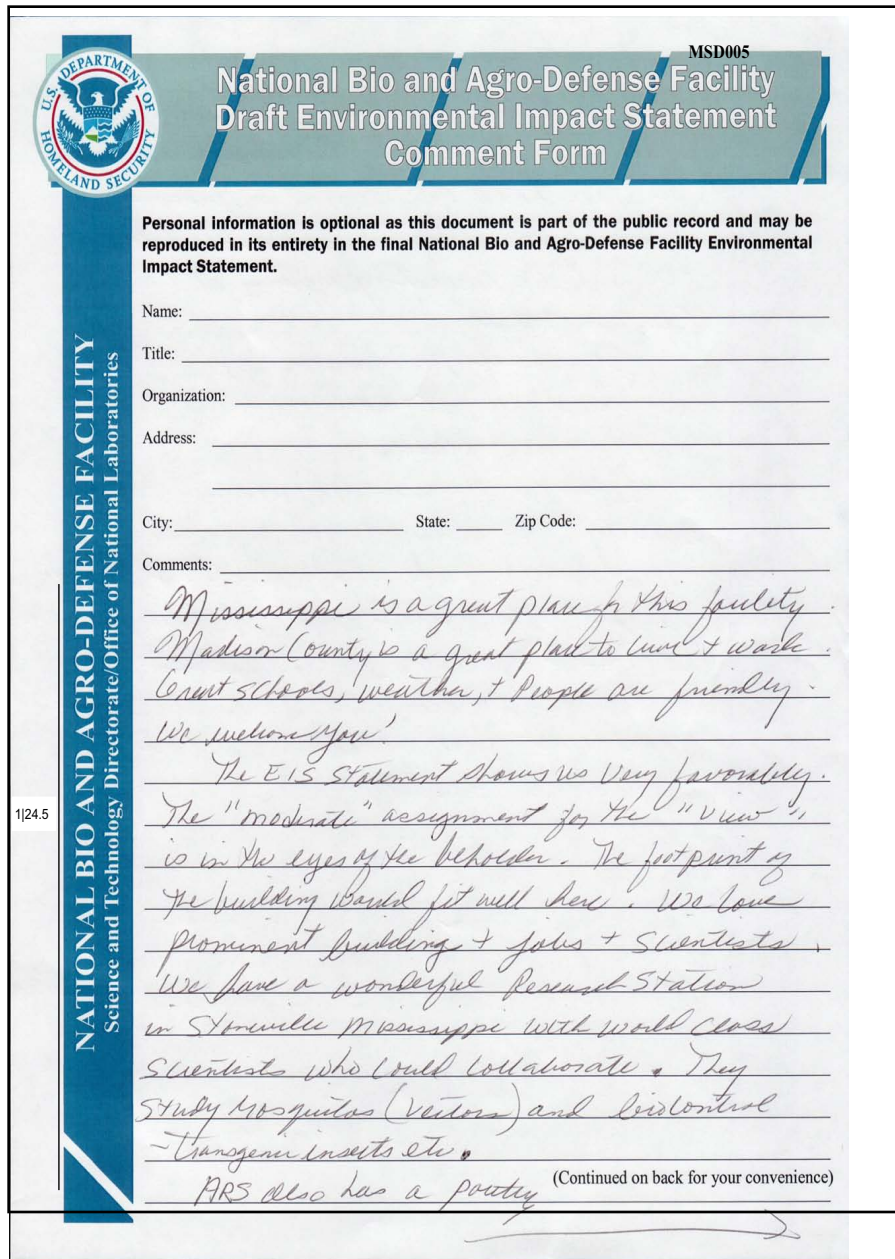 MSD005
U.S. DEPARTMENT OF HOMELAND SECURITY
National Bio and Agro-Defense Facility
Draft Environmental Impact Statement
Comment Form
NATIONAL BIO AND AGRO-DEFENSE FACILITY
Science and Technology Directorate/Office of National Laboratories
Personal information is optional as this document is part of the public record and may be
reproduced in its entirety in the final National Bio and Agro-Defense Facility Environmental
Impact Statement.
Name:
Title:
Organization:
Address:
City: State: Zip Code:
Comments:
Mississippi is a great place for this facility.
Madison County is a great place to live + work.
Great schools, weather, + People are friendly.
We welcome you!
The EIS Statement shows us very favorably.
1|24.5
The "moderate" assignment for the "view",
is in the eyes of the beholder. The footprint of
the building would fit well here. We love
prominent building + jobs + scientists.
We have a wonderful Research Station
in Stoneville Mississippi with world class
scientists who could collaborate. They
study mosquitos (vectors) and biocontrol
- transgenic insects etc.
ARS also has a poultry
(Continued on back for your convenience)